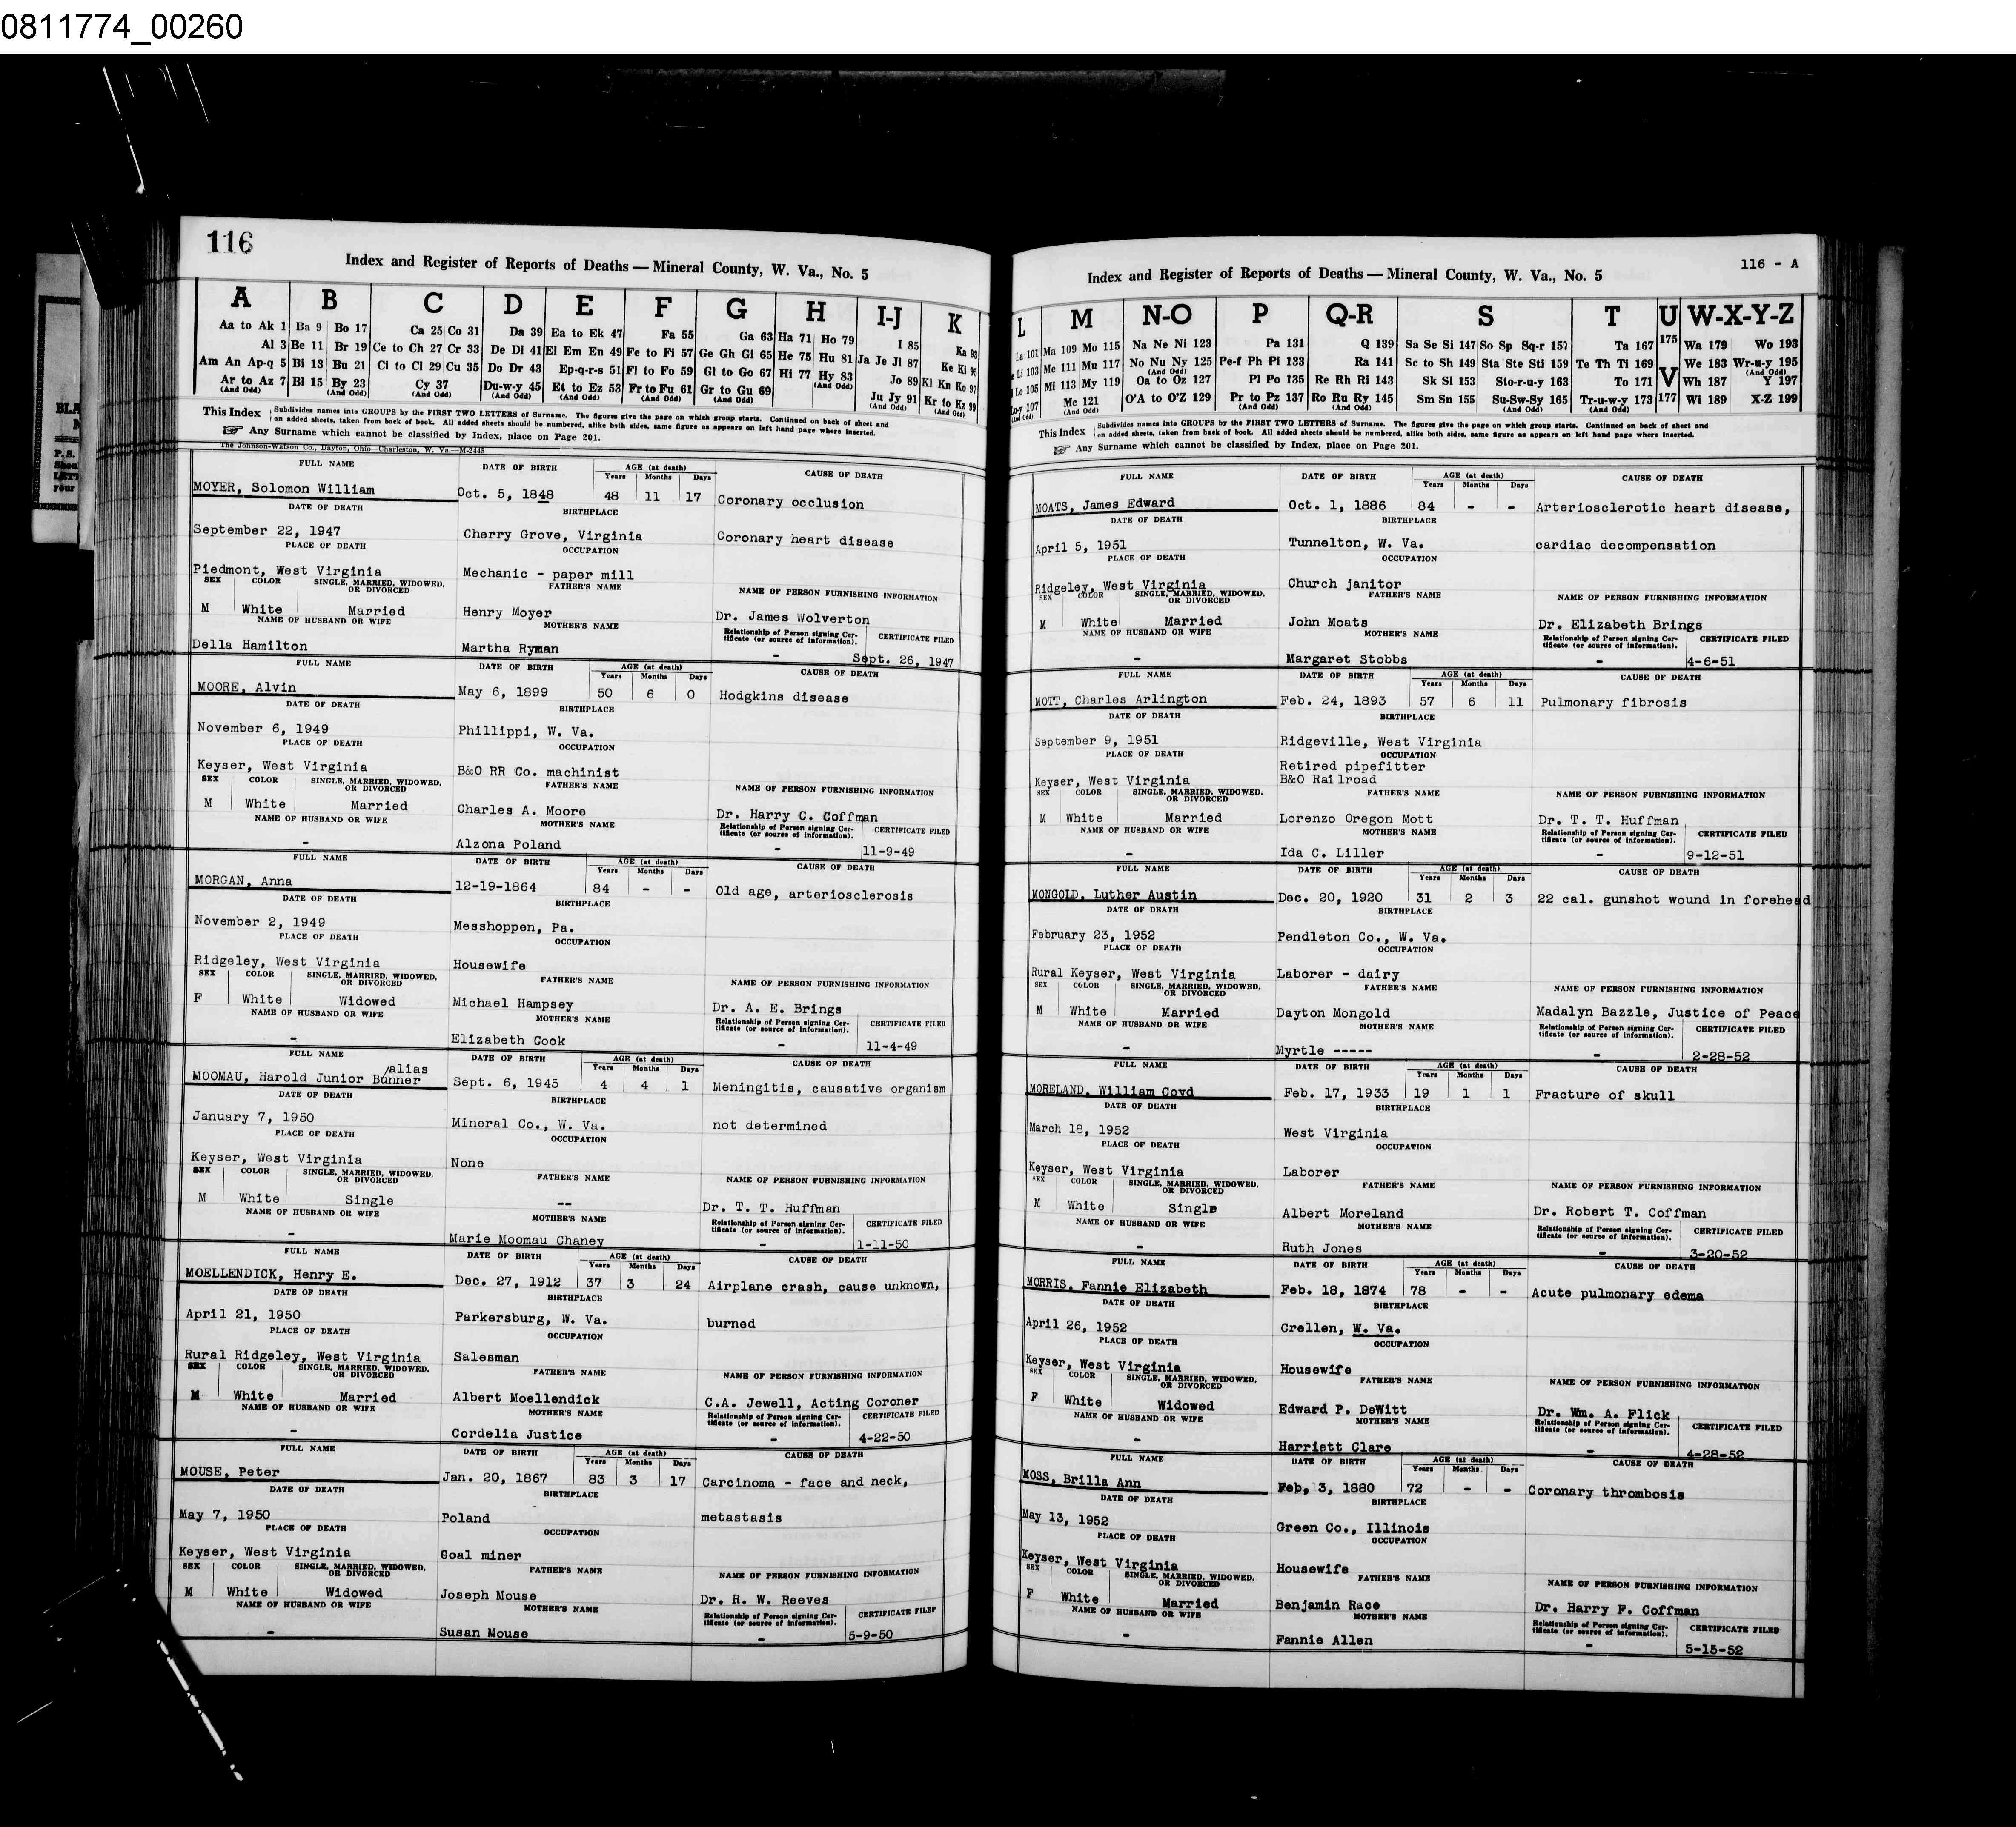 0811774_00260
116
Index and Register of Reports of Deaths — Mineral County, W. Va., No. 5
A B C D E F G H I-J K
Aa to Ak 1 Ba 9 Bo 17 Ca 25 Co 31 Da 39 Ea to Ek 47 Fa 55 Ga 63 Ha 71 Ho 79 I 85 Ka 93
Al 3 Be 11 Br 19 Ce to Ch 27 Cr 33 De Di 41 El Em En 49 Fe to Fi 57 Ge Gh Gi 65 He 75 Hu 81 Ja Je Ji 87 Ke Ki 95
Am An Ap-q 5 Bi 13 Bu 21 Ci to Cl 29 Cu 35 Do Dr 43 Ep-q-r-s 51 Fl to Fo 59 Gl to Go 67 Hi 77 Hy 83 Jo 89 Kl Kn Ko 97
Ar to Az 7 Bl 15 By 23 Cy 37 Du-w-y 45 Et to Ez 53 Fr to Fu 61 Gr to Gu 69 (And Odd) Ju Jy 91 Kr to Kz 99
(And Odd) (And Odd) (And Odd) (And Odd) (And Odd) (And Odd) (And Odd) (And Odd) (And Odd)
This Index Subdivides names into GROUPS by the FIRST TWO LETTERS of Surname. The figures give the page on which group starts. Continued on back of sheet and
on added sheets, taken from back of book. All added sheets should be numbered, alike both sides, same figure as appears on left hand page where inserted.
Any Surname which cannot be classified by Index, place on Page 201.
The Johnson-Watson Co., Dayton, Ohio—Charleston, W. Va.—M-2445
FULL NAME DATE OF BIRTH AGE (at death) CAUSE OF DEATH
Years Months Days
MOYER, Solomon William Oct. 5, 1848 48 11 17 Coronary occlusion
DATE OF DEATH BIRTHPLACE
September 22, 1947 Cherry Grove, Virginia Coronary heart disease
PLACE OF DEATH OCCUPATION
Piedmont, West Virginia Mechanic - paper mill
SEX COLOR SINGLE, MARRIED, WIDOWED, OR DIVORCED FATHER'S NAME NAME OF PERSON FURNISHING INFORMATION
M White Married Henry Moyer Dr. James Wolverton
NAME OF HUSBAND OR WIFE MOTHER'S NAME Relationship of Person signing Certificate (or source of information). CERTIFICATE FILED
Della Hamilton Martha Ryman - Sept. 26, 1947
FULL NAME DATE OF BIRTH AGE (at death) CAUSE OF DEATH
Years Months Days
MOORE, Alvin May 6, 1899 50 6 0 Hodgkins disease
DATE OF DEATH BIRTHPLACE
November 6, 1949 Phillippi, W. Va.
PLACE OF DEATH OCCUPATION
Keyser, West Virginia B&O RR Co. machinist
SEX COLOR SINGLE, MARRIED, WIDOWED, OR DIVORCED FATHER'S NAME NAME OF PERSON FURNISHING INFORMATION
M White Married Charles A. Moore Dr. Harry C. Coffman
NAME OF HUSBAND OR WIFE MOTHER'S NAME Relationship of Person signing Certificate (or source of information). CERTIFICATE FILED
- Alzona Poland - 11-9-49
FULL NAME DATE OF BIRTH AGE (at death) CAUSE OF DEATH
Years Months Days
MORGAN, Anna 12-19-1864 84 - - Old age, arteriosclerosis
DATE OF DEATH BIRTHPLACE
November 2, 1949 Messhoppen, Pa.
PLACE OF DEATH OCCUPATION
Ridgeley, West Virginia Housewife
SEX COLOR SINGLE, MARRIED, WIDOWED, OR DIVORCED FATHER'S NAME NAME OF PERSON FURNISHING INFORMATION
F White Widowed Michael Hampsey Dr. A. E. Brings
NAME OF HUSBAND OR WIFE MOTHER'S NAME Relationship of Person signing Certificate (or source of information). CERTIFICATE FILED
- Elizabeth Cook - 11-4-49
FULL NAME DATE OF BIRTH AGE (at death) CAUSE OF DEATH
Years Months Days
MOOMAU, Harold Junior /alias Bunner Sept. 6, 1945 4 4 1 Meningitis, causative organism
DATE OF DEATH BIRTHPLACE
January 7, 1950 Mineral Co., W. Va. not determined
PLACE OF DEATH OCCUPATION
Keyser, West Virginia None
SEX COLOR SINGLE, MARRIED, WIDOWED, OR DIVORCED FATHER'S NAME NAME OF PERSON FURNISHING INFORMATION
M White Single -- Dr. T. T. Huffman
NAME OF HUSBAND OR WIFE MOTHER'S NAME Relationship of Person signing Certificate (or source of information). CERTIFICATE FILED
- Marie Moomau Chaney - 1-11-50
FULL NAME DATE OF BIRTH AGE (at death) CAUSE OF DEATH
Years Months Days
MOELLENDICK, Henry E. Dec. 27, 1912 37 3 24 Airplane crash, cause unknown,
DATE OF DEATH BIRTHPLACE
April 21, 1950 Parkersburg, W. Va. burned
PLACE OF DEATH OCCUPATION
Rural Ridgeley, West Virginia Salesman
SEX COLOR SINGLE, MARRIED, WIDOWED, OR DIVORCED FATHER'S NAME NAME OF PERSON FURNISHING INFORMATION
M White Married Albert Moellendick C.A. Jewell, Acting Coroner
NAME OF HUSBAND OR WIFE MOTHER'S NAME Relationship of Person signing Certificate (or source of information). CERTIFICATE FILED
- Cordelia Justice - 4-22-50
FULL NAME DATE OF BIRTH AGE (at death) CAUSE OF DEATH
Years Months Days
MOUSE, Peter Jan. 20, 1867 83 3 17 Carcinoma - face and neck,
DATE OF DEATH BIRTHPLACE
May 7, 1950 Poland metastasis
PLACE OF DEATH OCCUPATION
Keyser, West Virginia Goal miner
SEX COLOR SINGLE, MARRIED, WIDOWED, OR DIVORCED FATHER'S NAME NAME OF PERSON FURNISHING INFORMATION
M White Widowed Joseph Mouse Dr. R. W. Reeves
NAME OF HUSBAND OR WIFE MOTHER'S NAME Relationship of Person signing Certificate (or source of information). CERTIFICATE FILED
- Susan Mouse - 5-9-50
116 - A
Index and Register of Reports of Deaths — Mineral County, W. Va., No. 5
L M N-O P Q-R S T U W-X-Y-Z
La 101 Ma 109 Mo 115 Na Ne Ni 123 Pa 131 Q 139 Sa Se Si 147 So Sp Sq-r 157 Ta 167 175 Wa 179 Wo 193
Li 103 Me 111 Mu 117 No Nu Ny 125 Pe-f Ph Pi 133 Ra 141 Sc to Sh 149 Sta Ste Sti 159 Te Th Ti 169 We 183 Wr-u-y 195
Lo 105 Mi 113 My 119 (And Odd) Oa to Oz 127 Pl Po 135 Re Rh Ri 143 Sk Sl 153 Sto-r-u-y 163 To 171 V Wh 187 (And Odd) Y 197
Lu-y 107 Mc 121 O'A to O'Z 129 Pr to Pz 137 Ro Ru Ry 145 Sm Sn 155 Su-Sw-Sy 165 Tr-u-w-y 173 177 Wi 189 X-Z 199
(And Odd) (And Odd) (And Odd) (And Odd) (And Odd) (And Odd)
This Index Subdivides names into GROUPS by the FIRST TWO LETTERS of Surname. The figures give the page on which group starts. Continued on back of sheet and
on added sheets, taken from back of book. All added sheets should be numbered, alike both sides, same figure as appears on left hand page where inserted.
Any Surname which cannot be classified by Index, place on Page 201.
FULL NAME DATE OF BIRTH AGE (at death) CAUSE OF DEATH
Years Months Days
MOATS, James Edward Oct. 1, 1886 84 - - Arteriosclerotic heart disease,
DATE OF DEATH BIRTHPLACE
April 5, 1951 Tunnelton, W. Va. cardiac decompensation
PLACE OF DEATH OCCUPATION
Ridgeley, West Virginia Church janitor
SEX COLOR SINGLE, MARRIED, WIDOWED, OR DIVORCED FATHER'S NAME NAME OF PERSON FURNISHING INFORMATION
M White Married John Moats Dr. Elizabeth Brings
NAME OF HUSBAND OR WIFE MOTHER'S NAME Relationship of Person signing Certificate (or source of information). CERTIFICATE FILED
- Margaret Stobbs - 4-6-51
FULL NAME DATE OF BIRTH AGE (at death) CAUSE OF DEATH
Years Months Days
MOTT, Charles Arlington Feb. 24, 1893 57 6 11 Pulmonary fibrosis
DATE OF DEATH BIRTHPLACE
September 9, 1951 Ridgeville, West Virginia
PLACE OF DEATH OCCUPATION
Retired pipefitter
Keyser, West Virginia B&O Railroad
SEX COLOR SINGLE, MARRIED, WIDOWED, OR DIVORCED FATHER'S NAME NAME OF PERSON FURNISHING INFORMATION
M White Married Lorenzo Oregon Mott Dr. T. T. Huffman
NAME OF HUSBAND OR WIFE MOTHER'S NAME Relationship of Person signing Certificate (or source of information). CERTIFICATE FILED
- Ida C. Liller - 9-12-51
FULL NAME DATE OF BIRTH AGE (at death) CAUSE OF DEATH
Years Months Days
MONGOLD, Luther Austin Dec. 20, 1920 31 2 3 22 cal. gunshot wound in forehead
DATE OF DEATH BIRTHPLACE
February 23, 1952 Pendleton Co., W. Va.
PLACE OF DEATH OCCUPATION
Rural Keyser, West Virginia Laborer - dairy
SEX COLOR SINGLE, MARRIED, WIDOWED, OR DIVORCED FATHER'S NAME NAME OF PERSON FURNISHING INFORMATION
M White Married Dayton Mongold Madalyn Bazzle, Justice of Peace
NAME OF HUSBAND OR WIFE MOTHER'S NAME Relationship of Person signing Certificate (or source of information). CERTIFICATE FILED
- Myrtle ----- - 2-28-52
FULL NAME DATE OF BIRTH AGE (at death) CAUSE OF DEATH
Years Months Days
MORELAND, William Coyd Feb. 17, 1933 19 1 1 Fracture of skull
DATE OF DEATH BIRTHPLACE
March 18, 1952 West Virginia
PLACE OF DEATH OCCUPATION
Keyser, West Virginia Laborer
SEX COLOR SINGLE, MARRIED, WIDOWED, OR DIVORCED FATHER'S NAME NAME OF PERSON FURNISHING INFORMATION
M White Single Albert Moreland Dr. Robert T. Coffman
NAME OF HUSBAND OR WIFE MOTHER'S NAME Relationship of Person signing Certificate (or source of information). CERTIFICATE FILED
- Ruth Jones - 3-20-52
FULL NAME DATE OF BIRTH AGE (at death) CAUSE OF DEATH
Years Months Days
MORRIS, Fannie Elizabeth Feb. 18, 1874 78 - - Acute pulmonary edema
DATE OF DEATH BIRTHPLACE
April 26, 1952 Crellen, W. Va.
PLACE OF DEATH OCCUPATION
Keyser, West Virginia Housewife
SEX COLOR SINGLE, MARRIED, WIDOWED, OR DIVORCED FATHER'S NAME NAME OF PERSON FURNISHING INFORMATION
F White Widowed Edward P. DeWitt Dr. Wm. A. Flick
NAME OF HUSBAND OR WIFE MOTHER'S NAME Relationship of Person signing Certificate (or source of information). CERTIFICATE FILED
- Harriett Clare - 4-28-52
FULL NAME DATE OF BIRTH AGE (at death) CAUSE OF DEATH
Years Months Days
MOSS, Brilla Ann Feb. 3, 1880 72 - - Coronary thrombosis
DATE OF DEATH BIRTHPLACE
May 13, 1952 Green Co., Illinois
PLACE OF DEATH OCCUPATION
Keyser, West Virginia Housewife
SEX COLOR SINGLE, MARRIED, WIDOWED, OR DIVORCED FATHER'S NAME NAME OF PERSON FURNISHING INFORMATION
F White Married Benjamin Race Dr. Harry F. Coffman
NAME OF HUSBAND OR WIFE MOTHER'S NAME Relationship of Person signing Certificate (or source of information). CERTIFICATE FILED
- Fannie Allen - 5-15-52